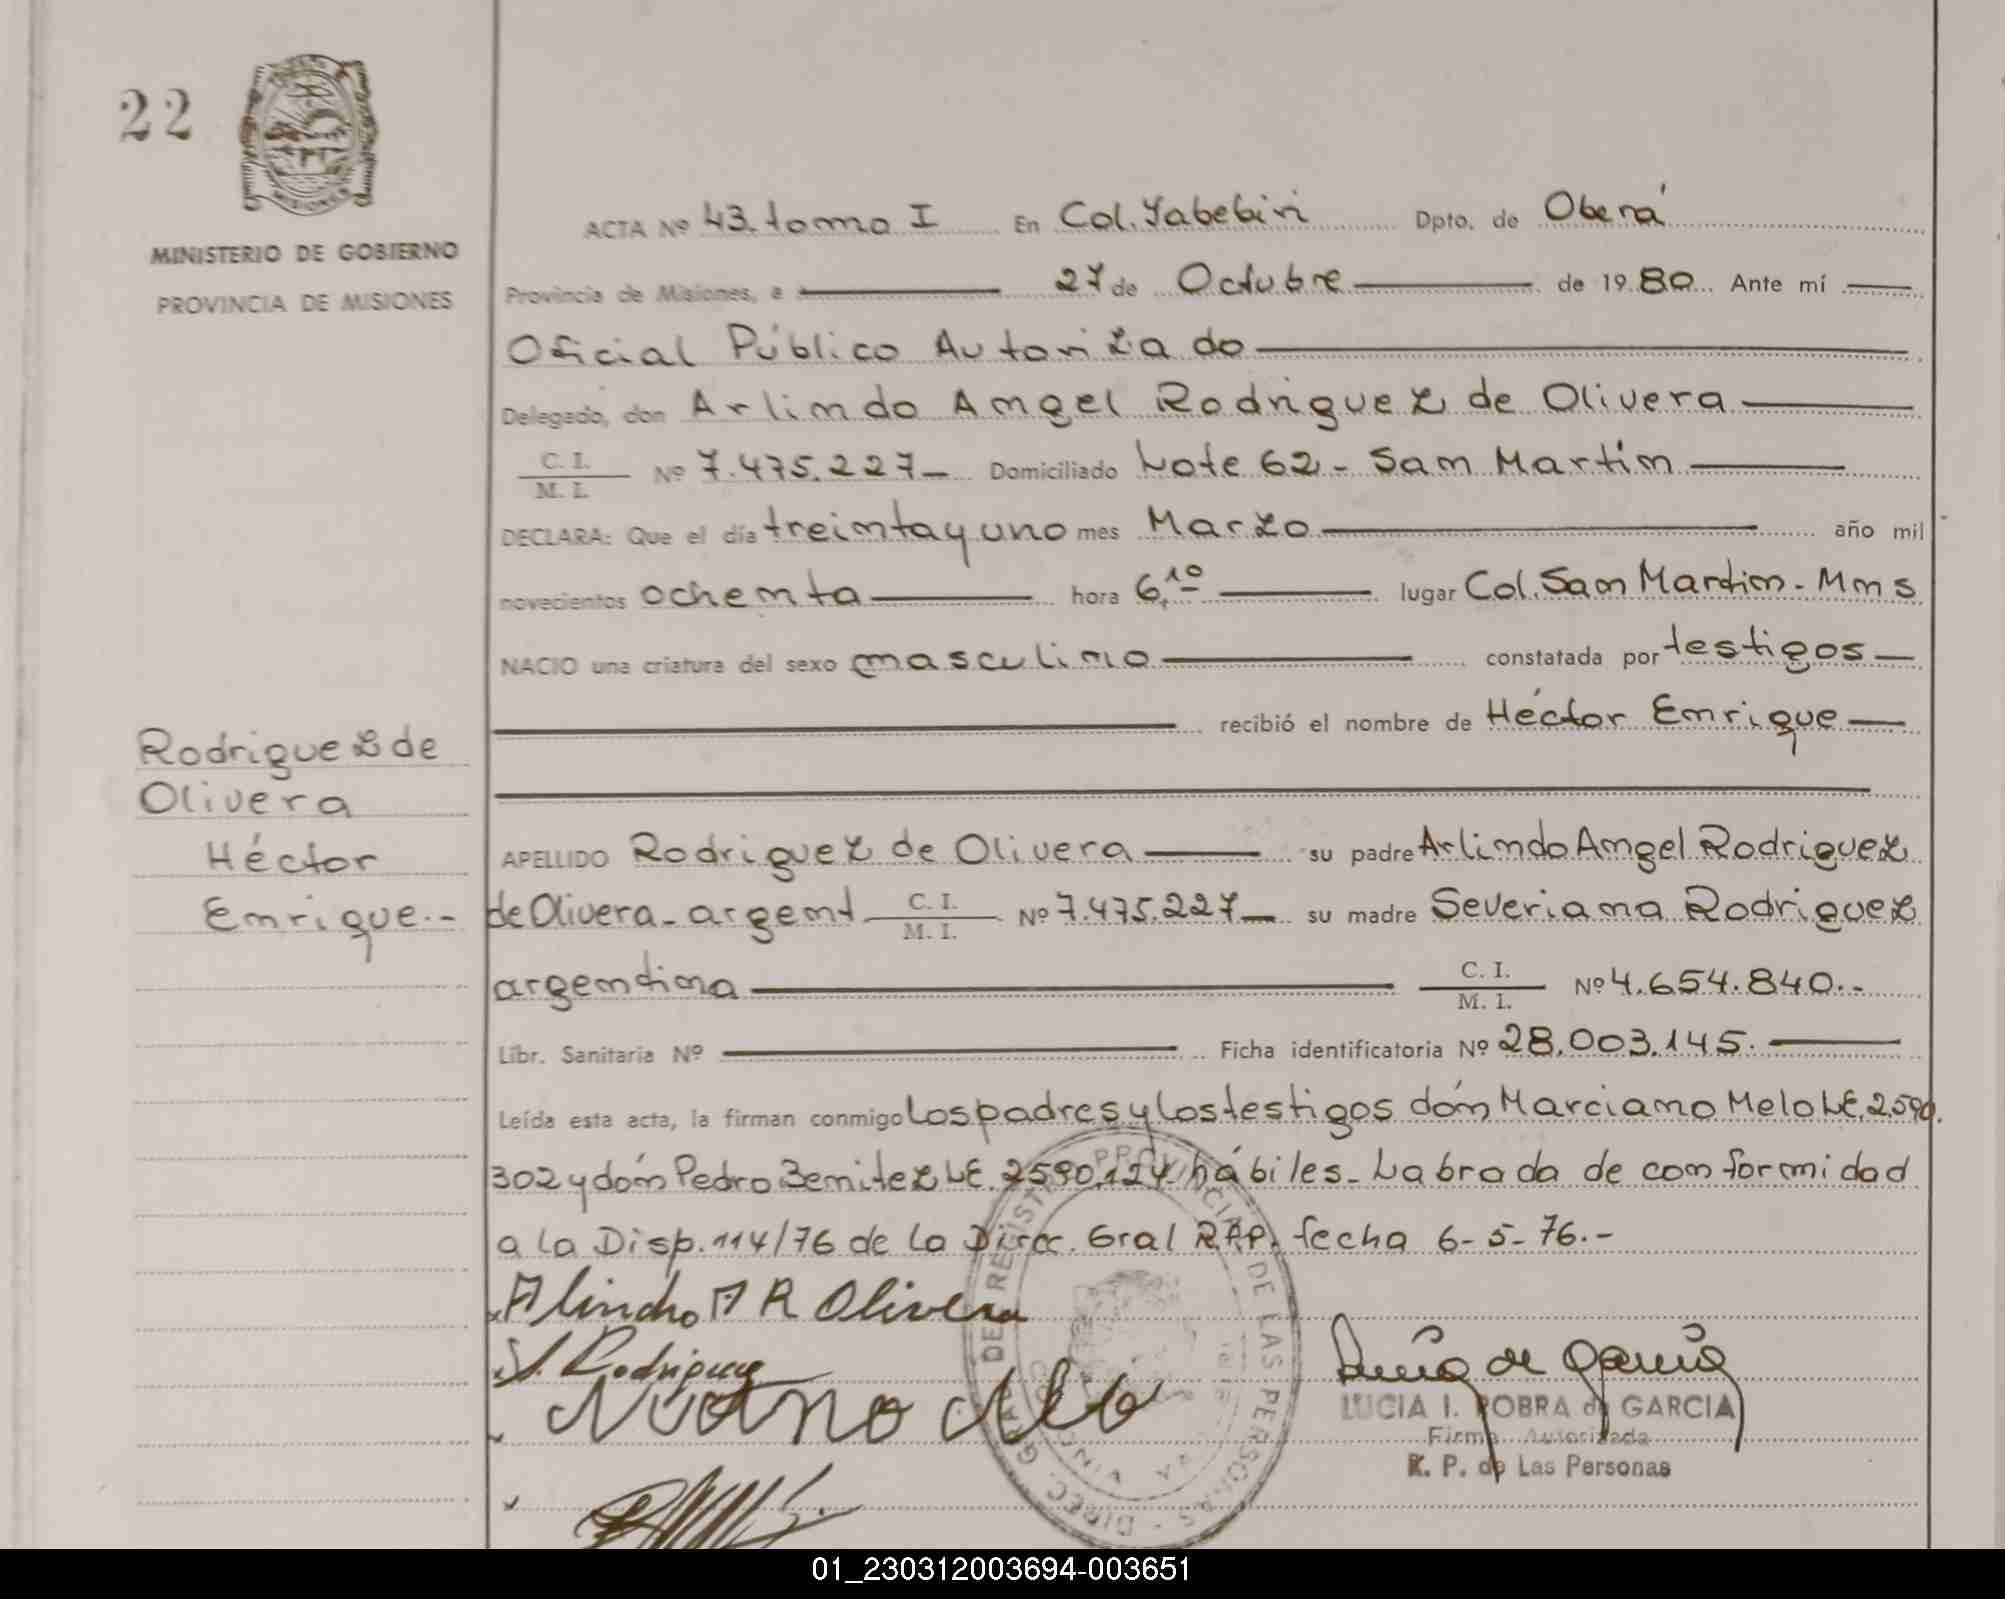 22
MINISTERIO DE GOBIERNO
PROVINCIA DE MISIONES
ACTA Nº 43. tomo I En Col. Yabebiri Dpto. de Oberá
Provincia de Misiones, a 27 de Octubre de 1980 Ante mí
Oficial Público Autorizado
Delegado, don Arlindo Angel Rodriguez de Olivera
C. I.
M. I. Nº 7.475.227 Domiciliado Lote 62 - San Martin
DECLARA: Que el día treinta y uno mes Marzo año mil
novecientos ochenta hora 6,10 lugar Col. San Martin - Mnes
NACIO una criatura del sexo masculino constatada por testigos
recibió el nombre de Héctor Enrique
Rodriguez de
Olivera
Héctor
Enrique.-
APELLIDO Rodriguez de Olivera su padre Arlindo Angel Rodriguez
de Olivera - argent C. I.
M. I. Nº 7.475.227 su madre Severiana Rodriguez
argentina C. I.
M. I. Nº 4.654.840.-
Libr. Sanitaria Nº Ficha identificatoria Nº 28.003.145.
Leída esta acta, la firman conmigo los padres y los testigos dón Marciano Melo LE. 2.590.
302 y dón Pedro Benitez LE. 2590.124 hábiles - Labrada de conformidad
a la Disp. 114/76 de la Direc. Gral R.P.P. fecha 6-5-76.-
Alindo A R Olivera
S. Rodriguez
Lucia de Garcia
LUCIA I. POBRA de GARCIA
Firma Autorizada
R. P. de Las Personas
DIREC. GRAL DE REGISTRO PROVINCIAL DE LAS PERSONAS
01_230312003694-003651